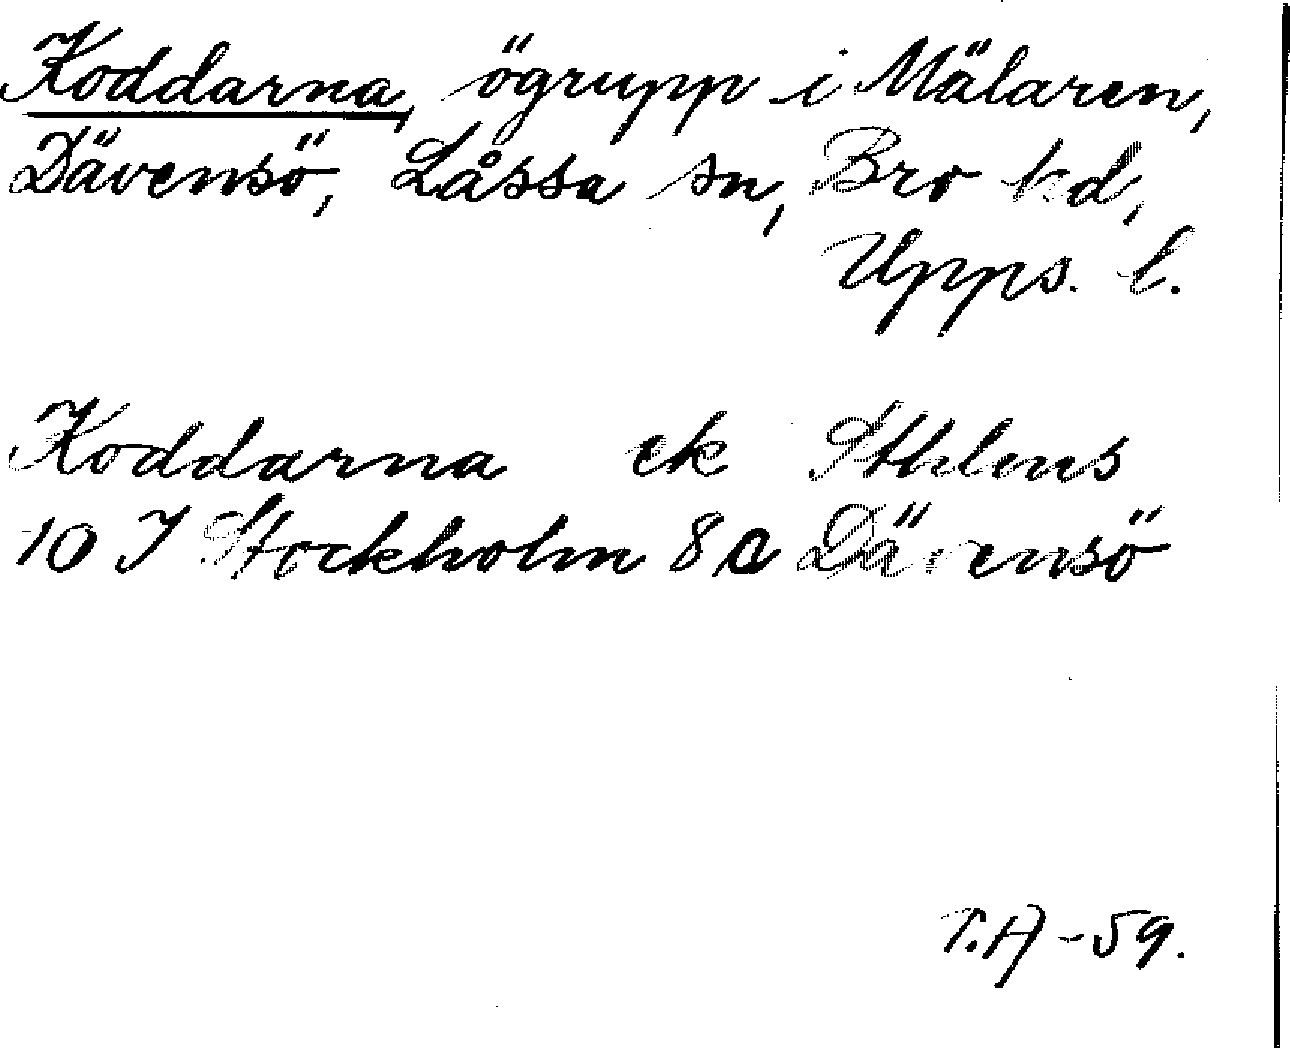 Koddarna, ögrupp i Mälaren,
Dävensö, Låssa sn, Bro hd,
Upps. l.
Koddarna ek Sthlens
10 I Stockholm 8 a Dävensö
T.A -59.